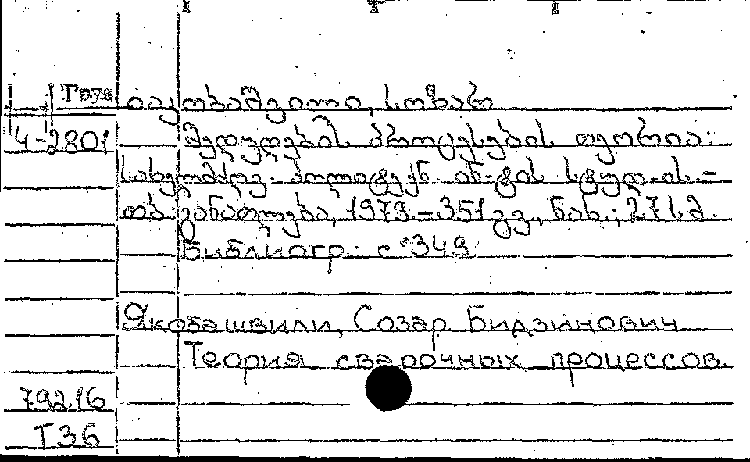 იაკობაშვილი, სოზარ
4-2801 შედუღების პროცესების თეორია:
სახელმძღვ. პოლიტექნ. ინ-ტის სტუდ-ის.-
თბ.: განათლება, 1973.-351 გვ., ნახ.; 27 სმ.
Библиогр.: с 349
Якобашвили, Созар Бидзинович
Теория сварочных процессов.
792.16
Т36